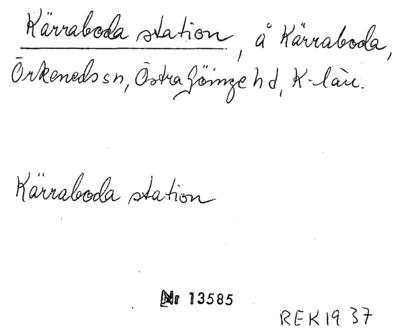 Kärraboda station, å Kärraboda,
Örkeneds sn, Östra Göinge hd, K-län.
Kärraboda station
Nr 13585
REK 1937